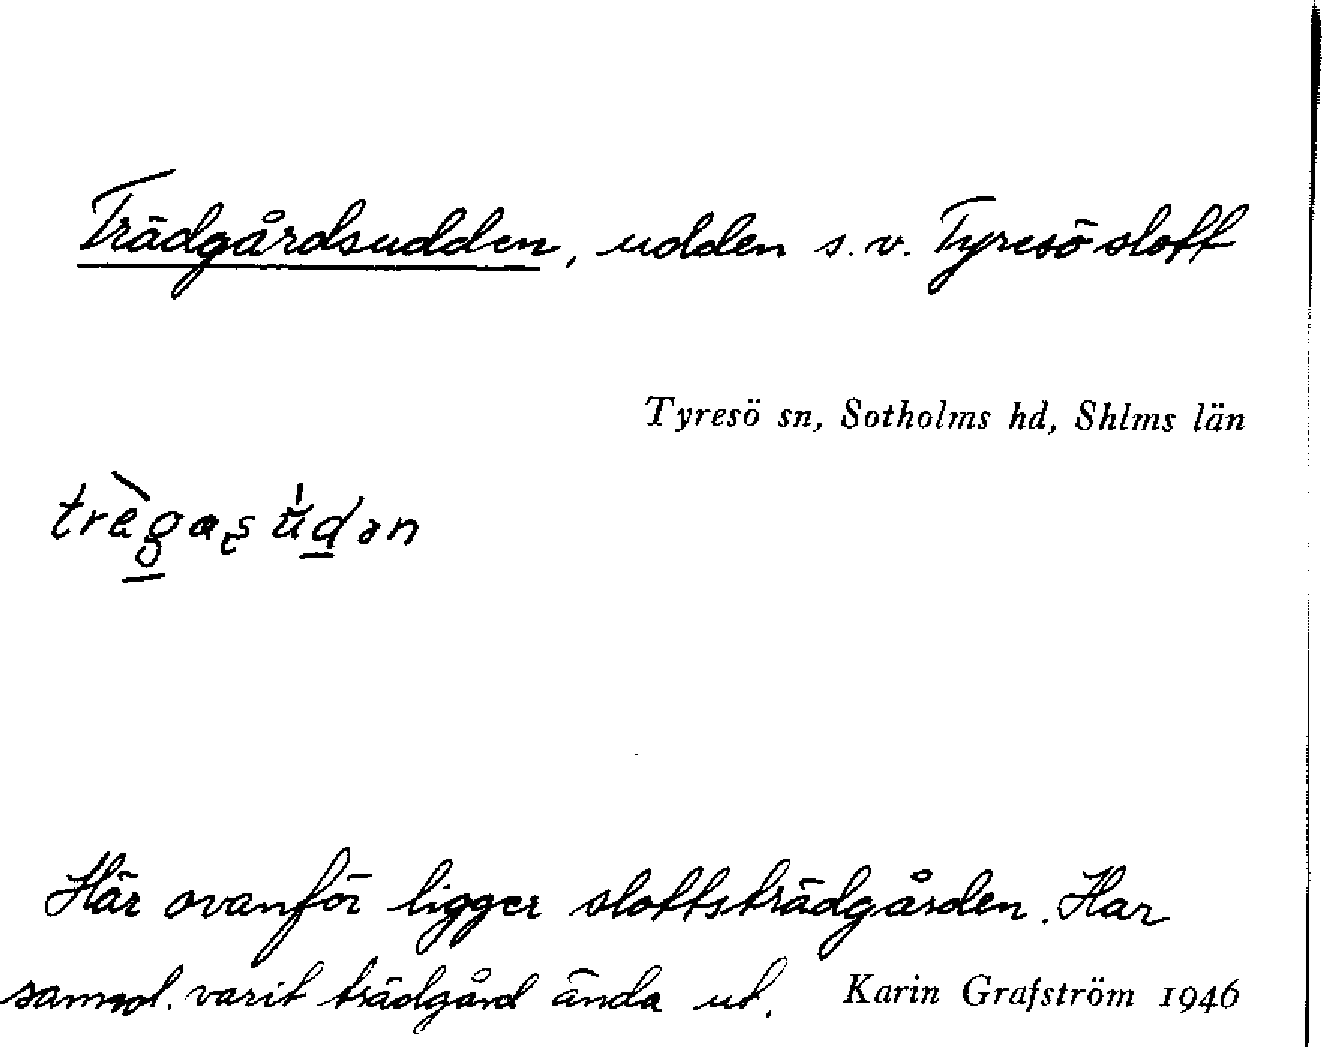 Trädgårdsudden, udden s.v. Tyresö slott
Tyresö sn, Sotholms hd, Shlms län
Här ovanför ligger slottsträdgården. Har
sannol. varit trädgård ända ut. Karin Grafström 1946